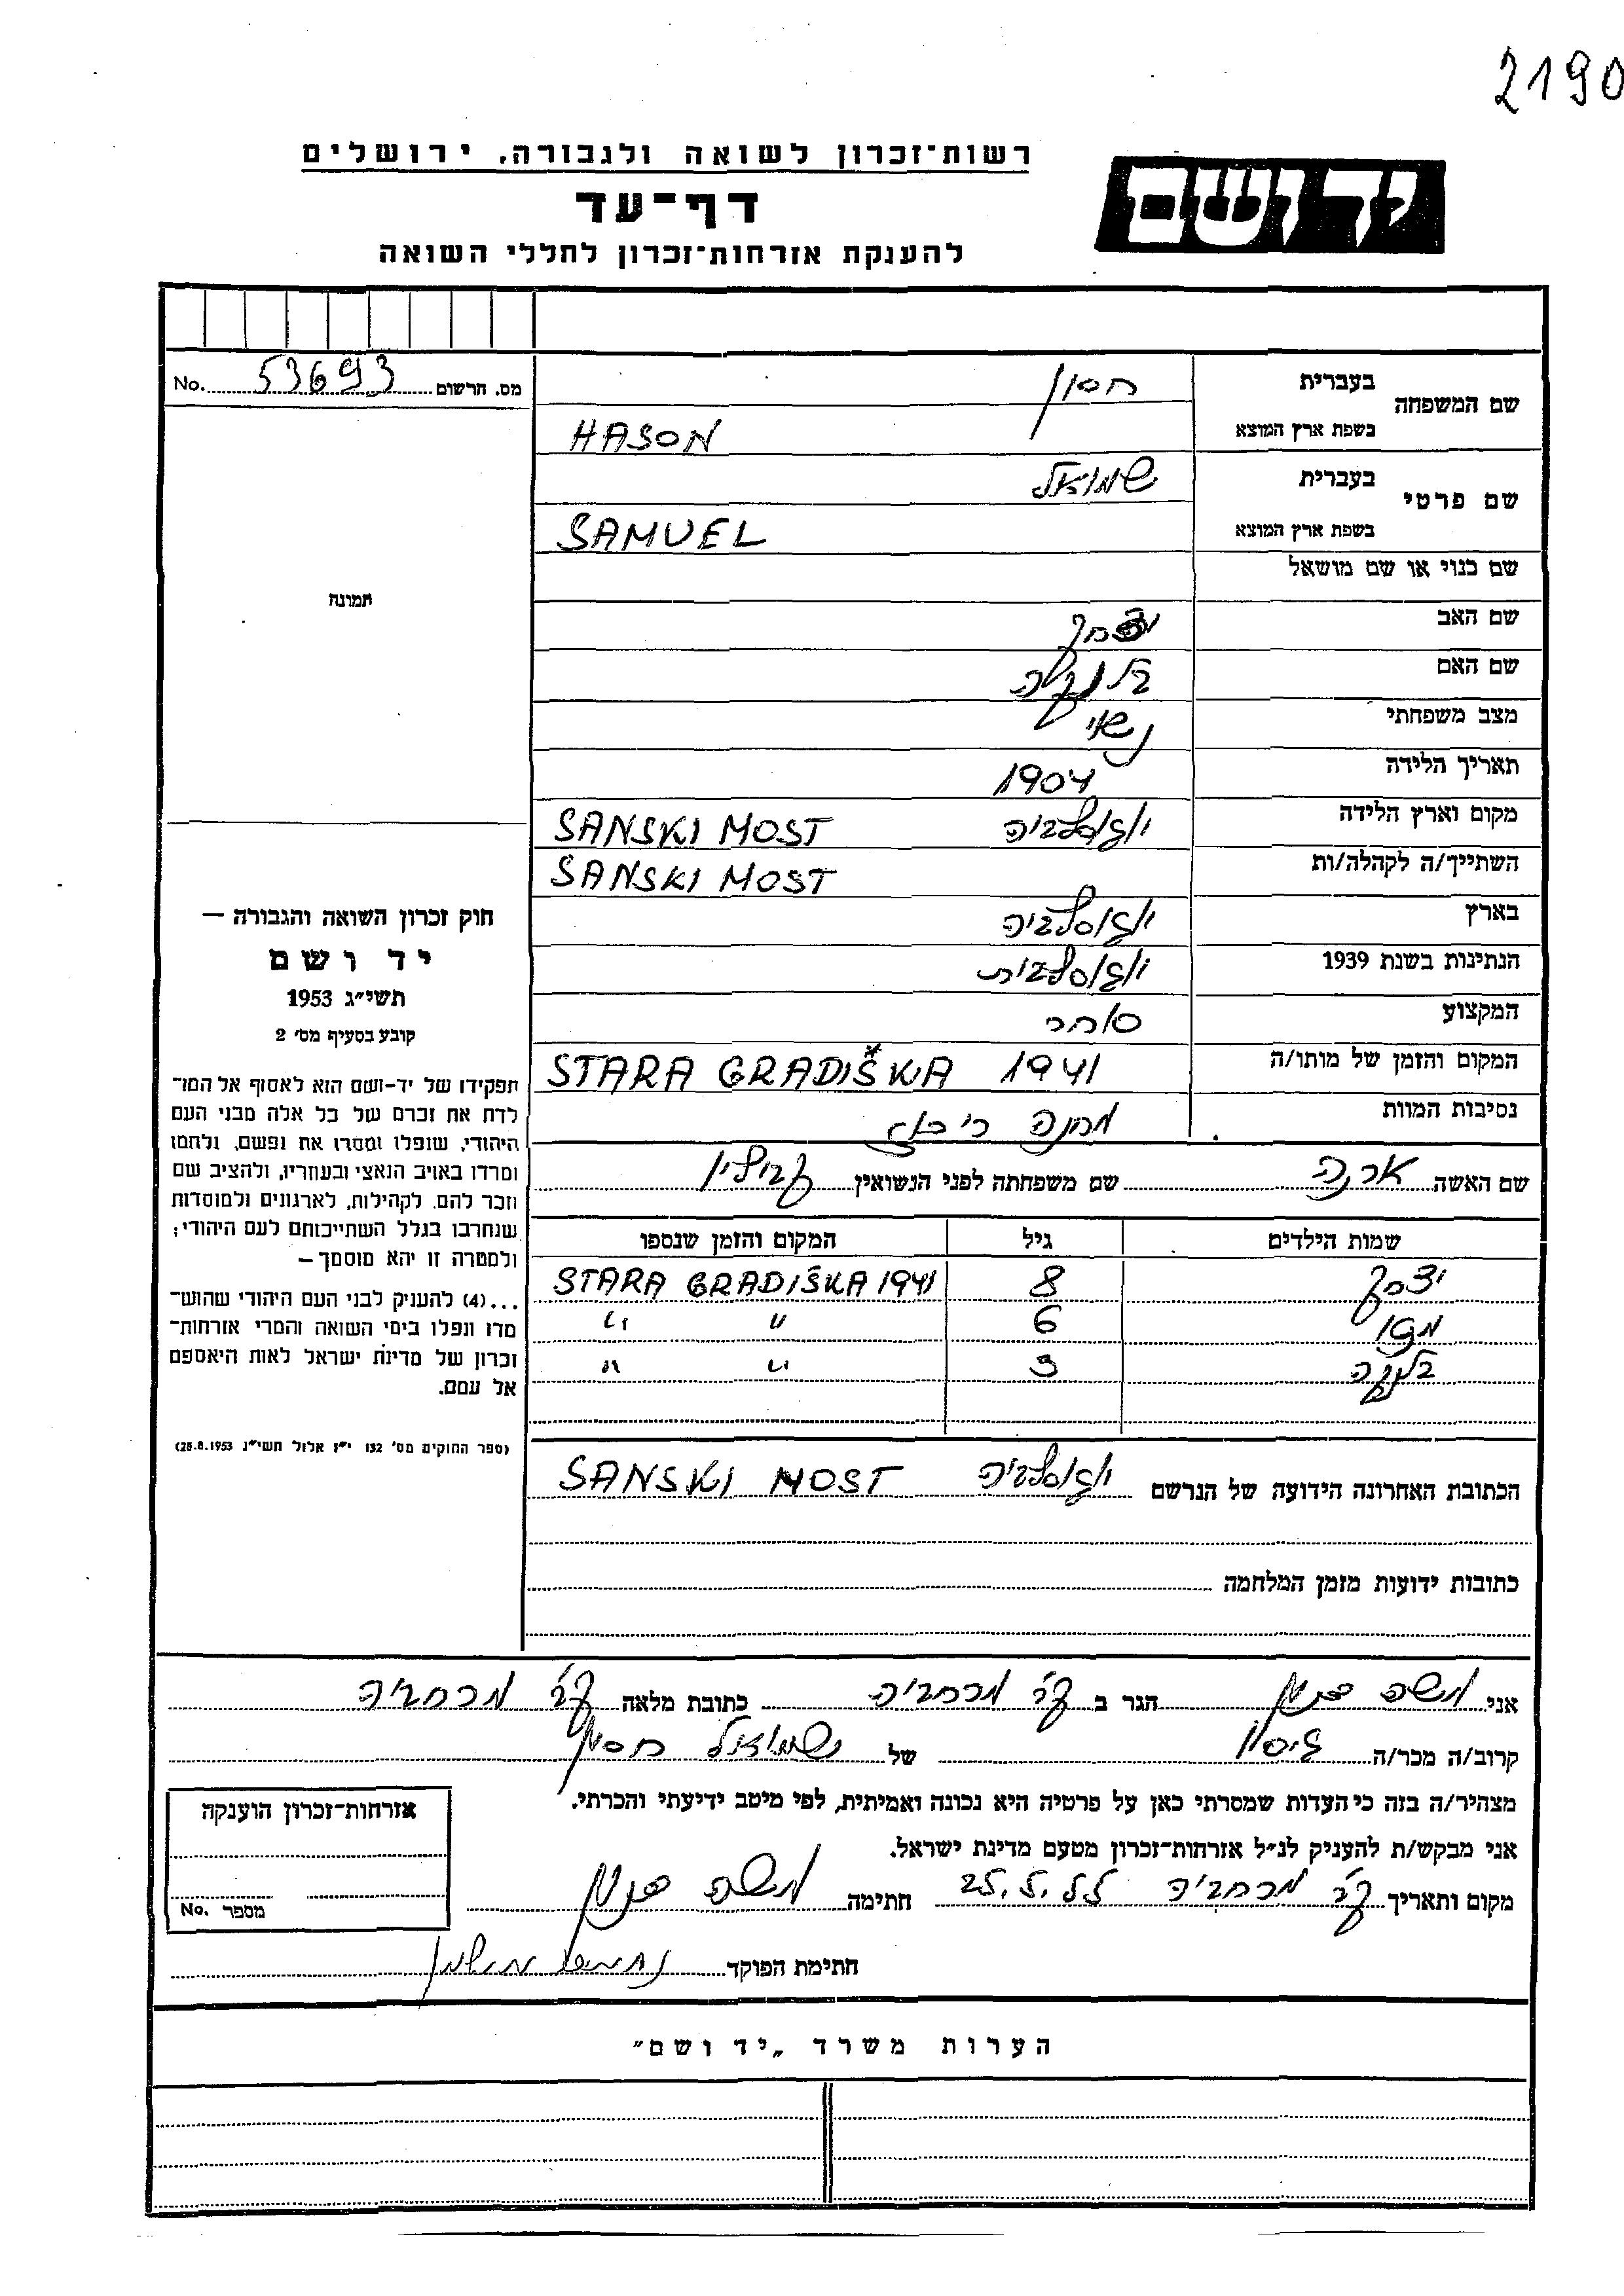 2190
רשות־זכרון לשואה ולגבורה, ירושלים
יד ושם
דף־עד
להענקת אזרחות־זכרון לחללי השואה
מס. הרשום 53693 No.
שם המשפחה בעברית חסון
בשפת ארץ המוצא HASON
שם פרטי בעברית שמואל
בשפת ארץ המוצא SAMUEL
שם כנוי או שם מושאל
שם האב יצחק
שם האם
מצב משפחתי נשוי
תאריך הלידה 1904
מקום וארץ הלידה יוגוסלביה SANSKI MOST
השתייך/ה לקהלה/ות SANSKI MOST
בארץ יוגוסלביה
הנתינות בשנת 1939 יוגוסלבית
המקצוע סוחר
המקום והזמן של מותו/ה STARA GRADIŠKA 1941
נסיבות המוות מחנה ריכוז
שם האשה ארנה שם משפחתה לפני הנשואין
שמות הילדים גיל המקום והזמן שנספו
יצחק 8 STARA GRADIŠKA 1941
6 " "
בלנקה 3 " "
הכתובת האחרונה הידועה של הנרשם יוגוסלביה SANSKI MOST
כתובות ידועות מזמן המלחמה
תמונה
חוק זכרון השואה והגבורה —
יד ושם
תשי"ג 1953
קובע בסעיף מס' 2
תפקידו של יד-ושם הוא לאסוף אל המו־
לדת את זכרם של כל אלה מבני העם
היהודי, שנפלו ומסרו את נפשם, נלחמו
ומרדו באויב הנאצי ובעוזריו, ולהציב שם
וזכר להם, לקהילות, לארגונים ולמוסדות
שנחרבו בגלל השתייכותם לעם היהודי;
ולמטרה זו יהא מוסמך —
...(4) להעניק לבני העם היהודי שהוש־
מדו ונפלו בימי השואה והמרי אזרחות־
זכרון של מדינת ישראל לאות היאספם
אל עמם.
(ספר החוקים מס' 132 י"ז אלול תשי"ג 28.8.1953)
אני משה הגר ב קב' מרחביה כתובת מלאה קב' מרחביה
קרוב/ה מכר/ה גיסו של שמואל חסון
מצהיר/ה בזה כי העדות שמסרתי כאן על פרטיה היא נכונה ואמיתית, לפי מיטב ידיעתי והכרתי.
אני מבקש/ת להעניק לנ"ל אזרחות־זכרון מטעם מדינת ישראל.
מקום ותאריך קב' מרחביה 25.5.55 חתימה משה
חתימת הפוקד
אזרחות־זכרון הוענקה
מספר No.
הערות משרד „יד ושם"